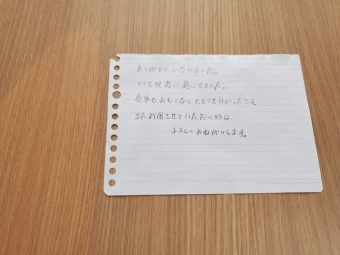 ありがとうございました。
とても快適に過ごせました。
食事もおもてなしもとても良かったです。
また利用させていただく時は
よろしくおねがいします。